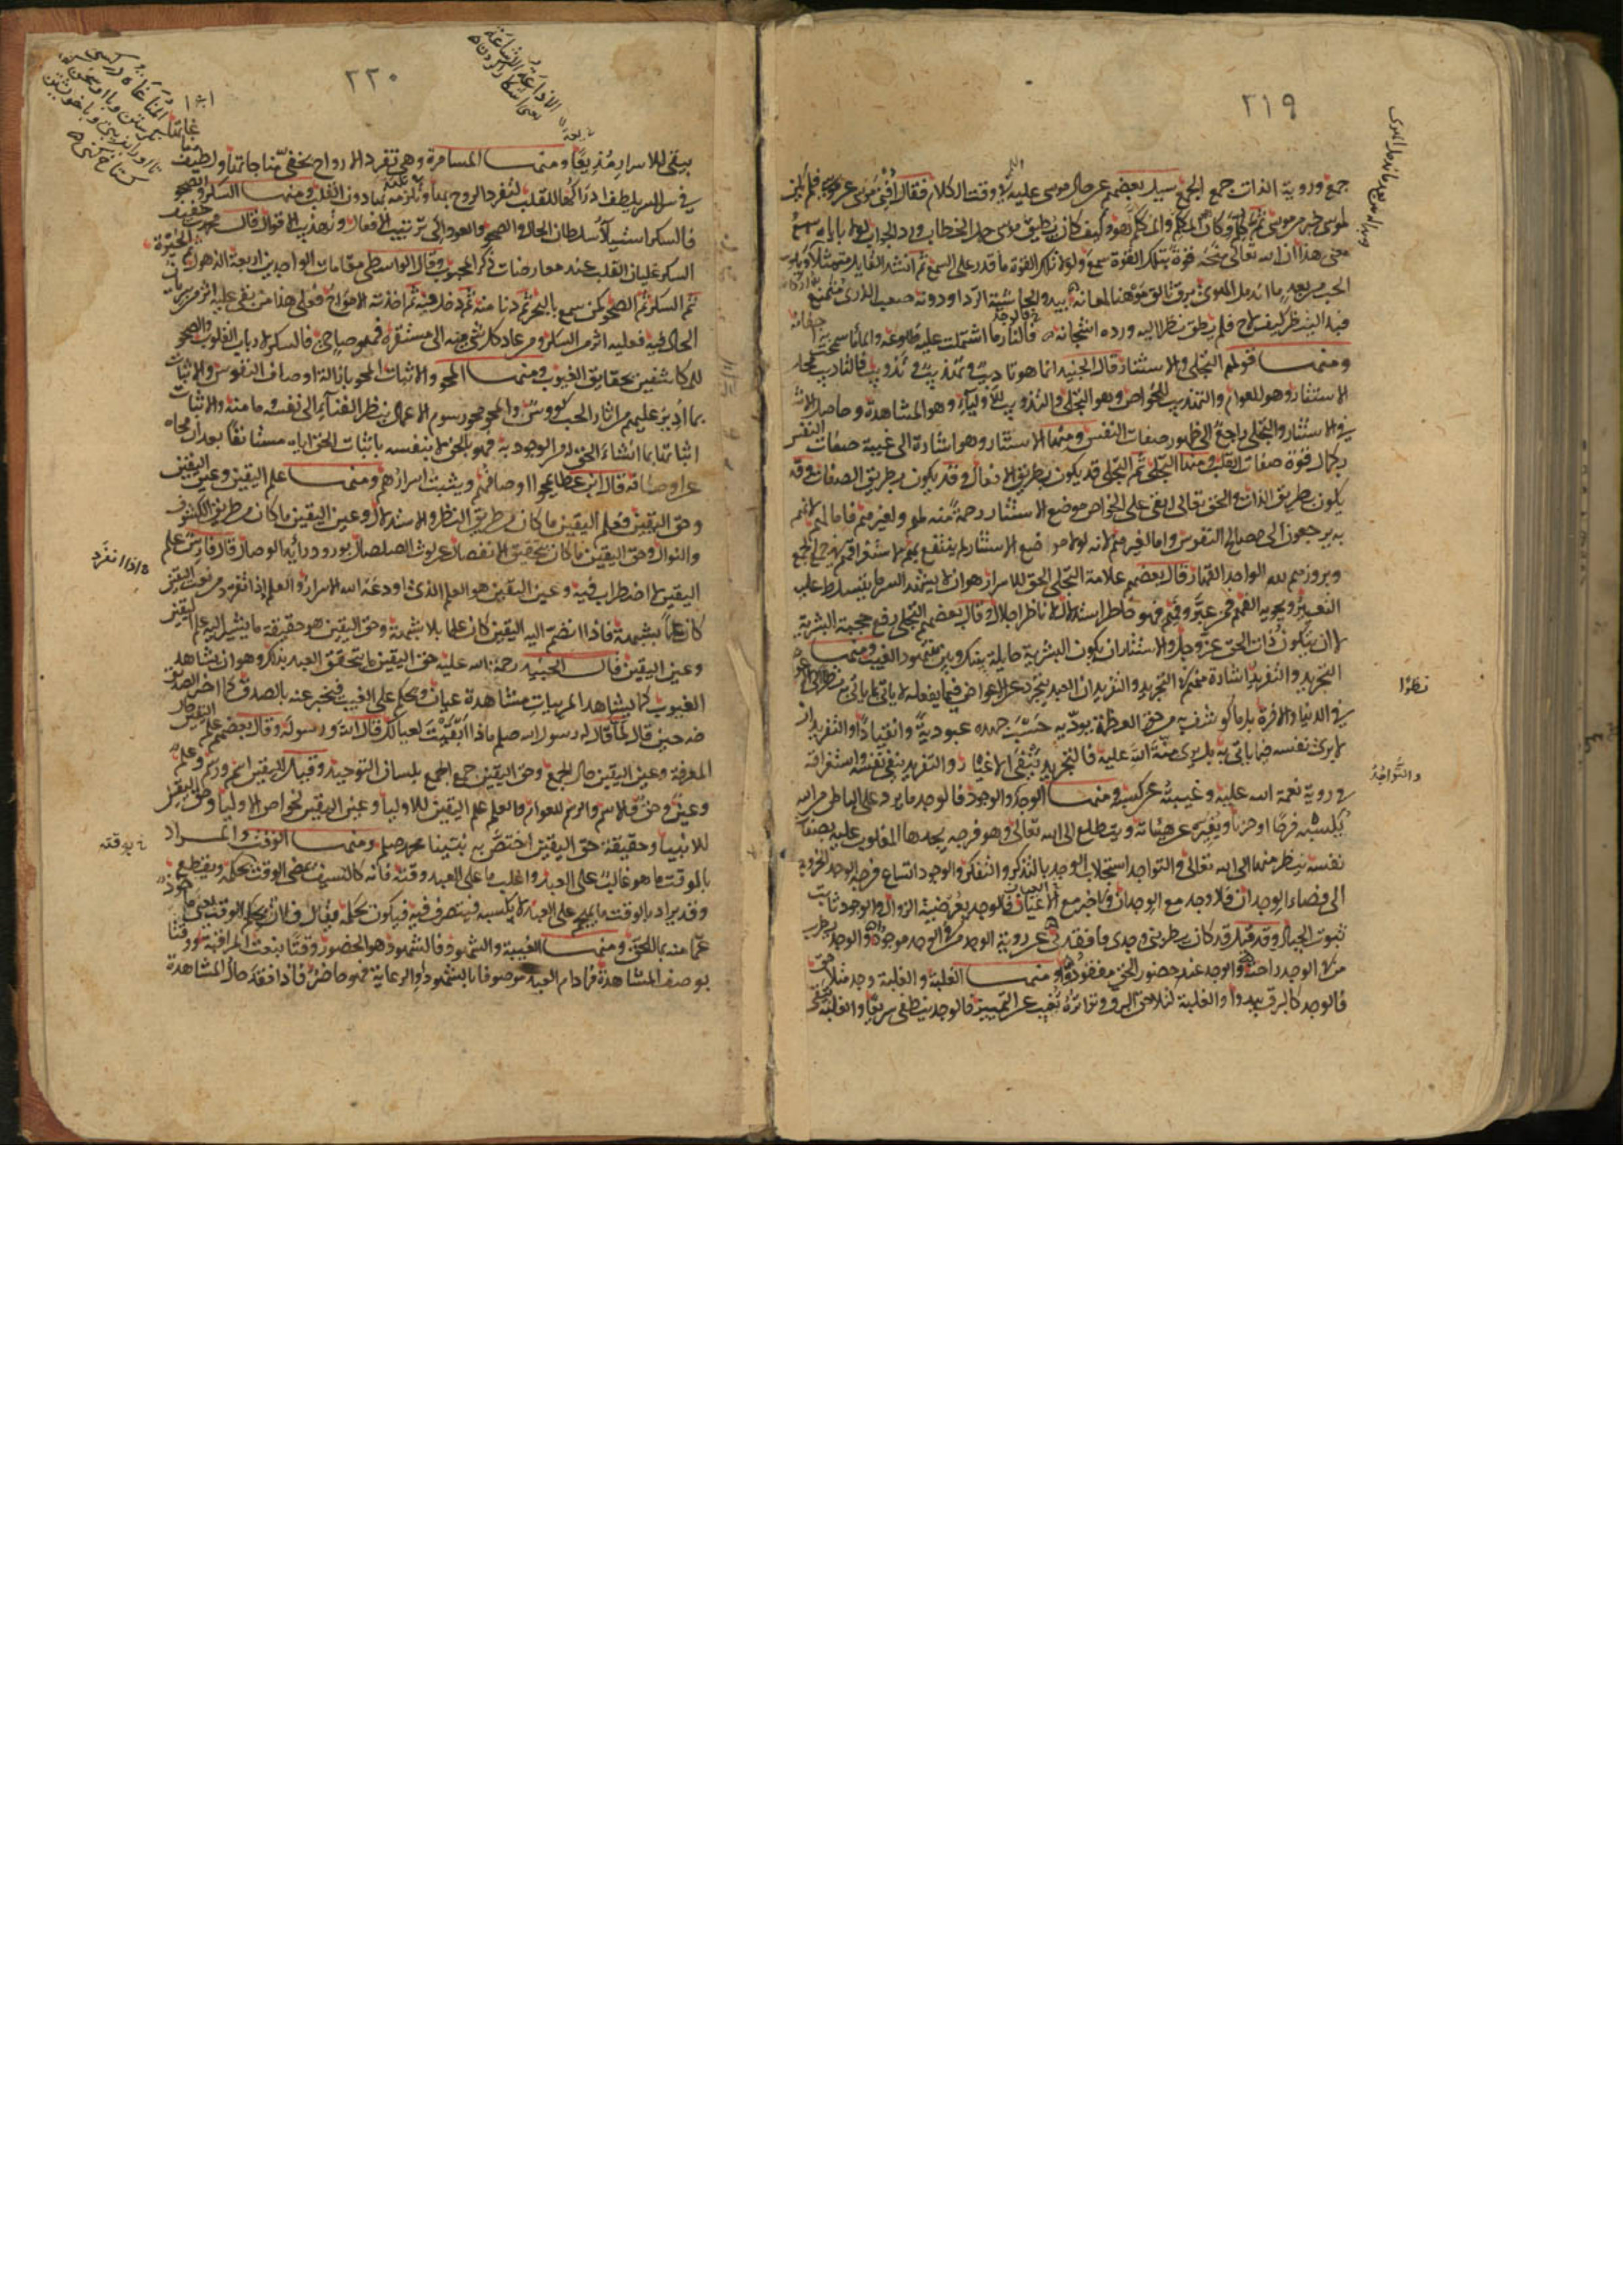 ٢١٩
جمع وروية الذات جمع الجمع سيل بعضهم عن حال موسى عليه وقت الكلام فقال افنى موسى عن موسى فلم يكن
لموسى خبر من موسى ثم كلم وكان المكلم والمكلم هو وكيف كان يطيق موسى حمل الخطاب ورد الجواب لولا باياه سمع
معنى هذا ان الله تعالى منحه قوة بتلك القوة سمع ولولا تلك القوة ما قدر على السمع ثم انشد القايل متمثلا
وبدا له من بعد ما اندمل الهوى برق تالق موهنا لمعانه يبدو كحاشية الردا ودونه صعب الذرى متمنع اركانه
فبدا لينظر كيف لاح فلم يطق نظرا اليه ورده اشجانه فالنار ما اشتملت عليه ضلوعه والما ما سمحت به اجفانه
ومنها قولهم التجلى والاستتار قال الجنيد انما هو تاديب وتهذيب وتذويب فالتاديب محل
الاستتار وهو للعوام والتهذيب للخواص وهو التجلى والتذويب للاولياء وهو المشاهدة وحاصل الاشارات
في الاستتار والتجلى راجع الى ظهور صفات النفس ومنها الاستتار وهو اشارة الى غيبة صفات النفس
بكمال قوة صفات القلب ومنها التجلى ثم التجلى قد يكون بطريق الافعال وقد يكون بطريق الصفات وقد
يكون بطريق الذات والحق تعالى ابقى على الخواص موضع الاستتار رحمة منه لهم ولغيرهم فاما لهم لانهم
به يرجعون الى مصالح النفوس واما لغيرهم لانه لولا مواضع الاستتار لم ينتفع بهم لاستغراقهم في جمع الجمع
وبروزهم لله الواحد القهار قال بعضهم علامة التجلى الحق للاسرار هو ان لا يشهد السر ما يتسلط عليه
التعبير ويحويه الفهم فمن عبر وفهم فهو خاطر استدلال لا ناظر اجلال وقال بعضهم التجلى رفع حجبة البشرية
لا ان يتلون ذات الحق عز وجل والاستتار ان يكون البشرية حايلة بينك وبين شهود الغيب ومنها
التجريد والتفريد اشارة منهم في التجريد والتفريد ان العبد يتجرد عن الاعواض فيما يفعله لا ياتى بما ياتى به نظرا الى الاعواض
في الدنيا والاخرة بل ما كوشف به من حق العظمة يوديه حسب جهده عبودية وانقيادا والتفريد ان
لا يرى نفسه فيما ياتى به بل يرى منة الله عليه فالتجريد بنفى الاغيار والتفريد بنفى نفسه واستغراقه
في روية نعمة الله عليه وغيبته عن كسبه ومنها الوجد والوجود فالوجد ما يرد على الباطن من الله
يكسبه فرحا او حزنا ويغيره عن هيئاته ويتطلع الى الله تعالى وهو فرجة يجدها المغلوب عليه بصفات
نفسه ينظر منها الى الله تعالى والتواجد استجلاب الوجد بالتذكر والتفكر والوجود اتساع فرجة الوجد بالخروج
الى فضاء الوجدان فلا وجد مع الوجدان ولا خبر مع العيان فالوجد بعرضية الزوال والوجود ثابت
ثبوت الجبال وقد قيل قد كان يطربنى وجدى فافقدنى عن روية الوجد من في الوجد موجود والوجد يطرب
من في الوجد راحته والوجد عند حضور الحق مفقود ومنها الغلبة والغلبة وجد متلاحق
فالوجد كالبرق يبدوا والغلبة لتلاحق البرق وتواتره تغيب عن التمييز فالوجد ينطفى سريعا والغلبة تبقى
وبدا له من بعد ما اندمل الهوى
نظرا
والتواجد
٢٢٠
الاذاعة الاشاعة
يعنى اشكارا كردن
بيقى للاسرار مذيعا ومنها المسامرة وهي تفرد الارواح بخفى مناجاتها ولطيف مناغاتها
في سر السر بلطيف ادراكها للقلب لتفرد الروح بها وتلتذ بها دون القلب ومنها السكر والصحو
فالسكر استيلاء سلطان الحال والصحو والعود الى ترتيب الافعال وتهذيب الاقوال قال محمد بن خفيف
السكر غليان القلب عند معارضات ذكر المحبوب وقال الواسطى مقامات الواجدين اربعة الذهول ثم الحيرة
ثم السكر ثم الصحو كمن سمع بالبحر ثم دنا منه ثم دخل فيه ثم اخذته الامواج فعلى هذا من بقى عليه اثر من سريان
الحال فيه فعليه اثر من السكر ومن عاد كل شى منه الى مستقره فهو صاح فالسكر لارباب القلوب والصحو
للمكاشفين بحقايق الغيوب ومنها المحو والاثبات المحو بازالة اوصاف النفوس والاثبات
بما ادير عليهم من اثار الحب كووس والمحو محو رسوم الاعمال بنظر الفنآء الى نفسه وما منه والاثبات
اثباتها بما انشاء الحق له من الوجود به فهو بالحق لا بنفسه باثبات الحق اياه مستانفا بعد ان محاه
عن اوصافه قال ابن عطا يمحوا اوصافهم ويثبت اسرارهم ومنها علم اليقين وعين اليقين
وحق اليقين فعلم اليقين ما كان من طريق النظر والاستدلال وعين اليقين ما كان من طريق الكشوف
والنوال وحق اليقين ما كان بتحقيق الانفصال عن لوث الصلصال بورود رايد الوصال قال فارس علم
اليقين لا اضطراب فيه وعين اليقين هو العلم الذى اودعه الله الاسرار والعلم اذا تفرد من نعت اليقين
كان علما بشبهة فاذا انضم اليه اليقين كان علما بلا شبهة وحق اليقين هو حقيقة ما يشير اليه علم اليقين
وعين اليقين قال الجنيد رحمة الله عليه حق اليقين ما يتحقق العبد بذلك وهو ان يشاهد
الغيوب كما يشاهد المرييات مشاهدة عيان ويحكم على الغيب فيخبر عنه بالصدق كما اخبر الصديق
ضه حين قال لما قال له رسول الله صلعم ماذا ابقيت لعيالك قال الله ورسوله وقال بعضهم علم اليقين حال
المعرفة وعين اليقين حال الجمع وحق اليقين جمع الجمع بلسان التوحيد وقيل لليقين اسم ورسم وعلم
وعين وحق فالاسم والرسم للعوام والعلم علم اليقين للاوليا وعين اليقين لخواص الاوليا وحق اليقين
للانبيا وحقيقة حق اليقين اختص به نبينا محمد صلعم ومنها الوقت والمراد
بالوقت ما هو غالب على العبد واغلب ما على العبد وقته فانه كالسيف يمضى الوقت بحكمه ويقطع
وقد يراد بالوقت ما يهجم على العبد لا بكسبه فيتصرف فيه فيكون بحكمه يقال فلان بحكم الوقت يعنى ماخوذ
عما منه بما للحق ومنها الغيبة والشهود فالشهود هو الحضور وقتا بنعت المراقبة ووقتا
بوصف المشاهدة فما دام العبد موصوفا بالشهود والرعاية فهو حاضر فاذا فقد حال المشاهدة
اذا انفرد
بوقته